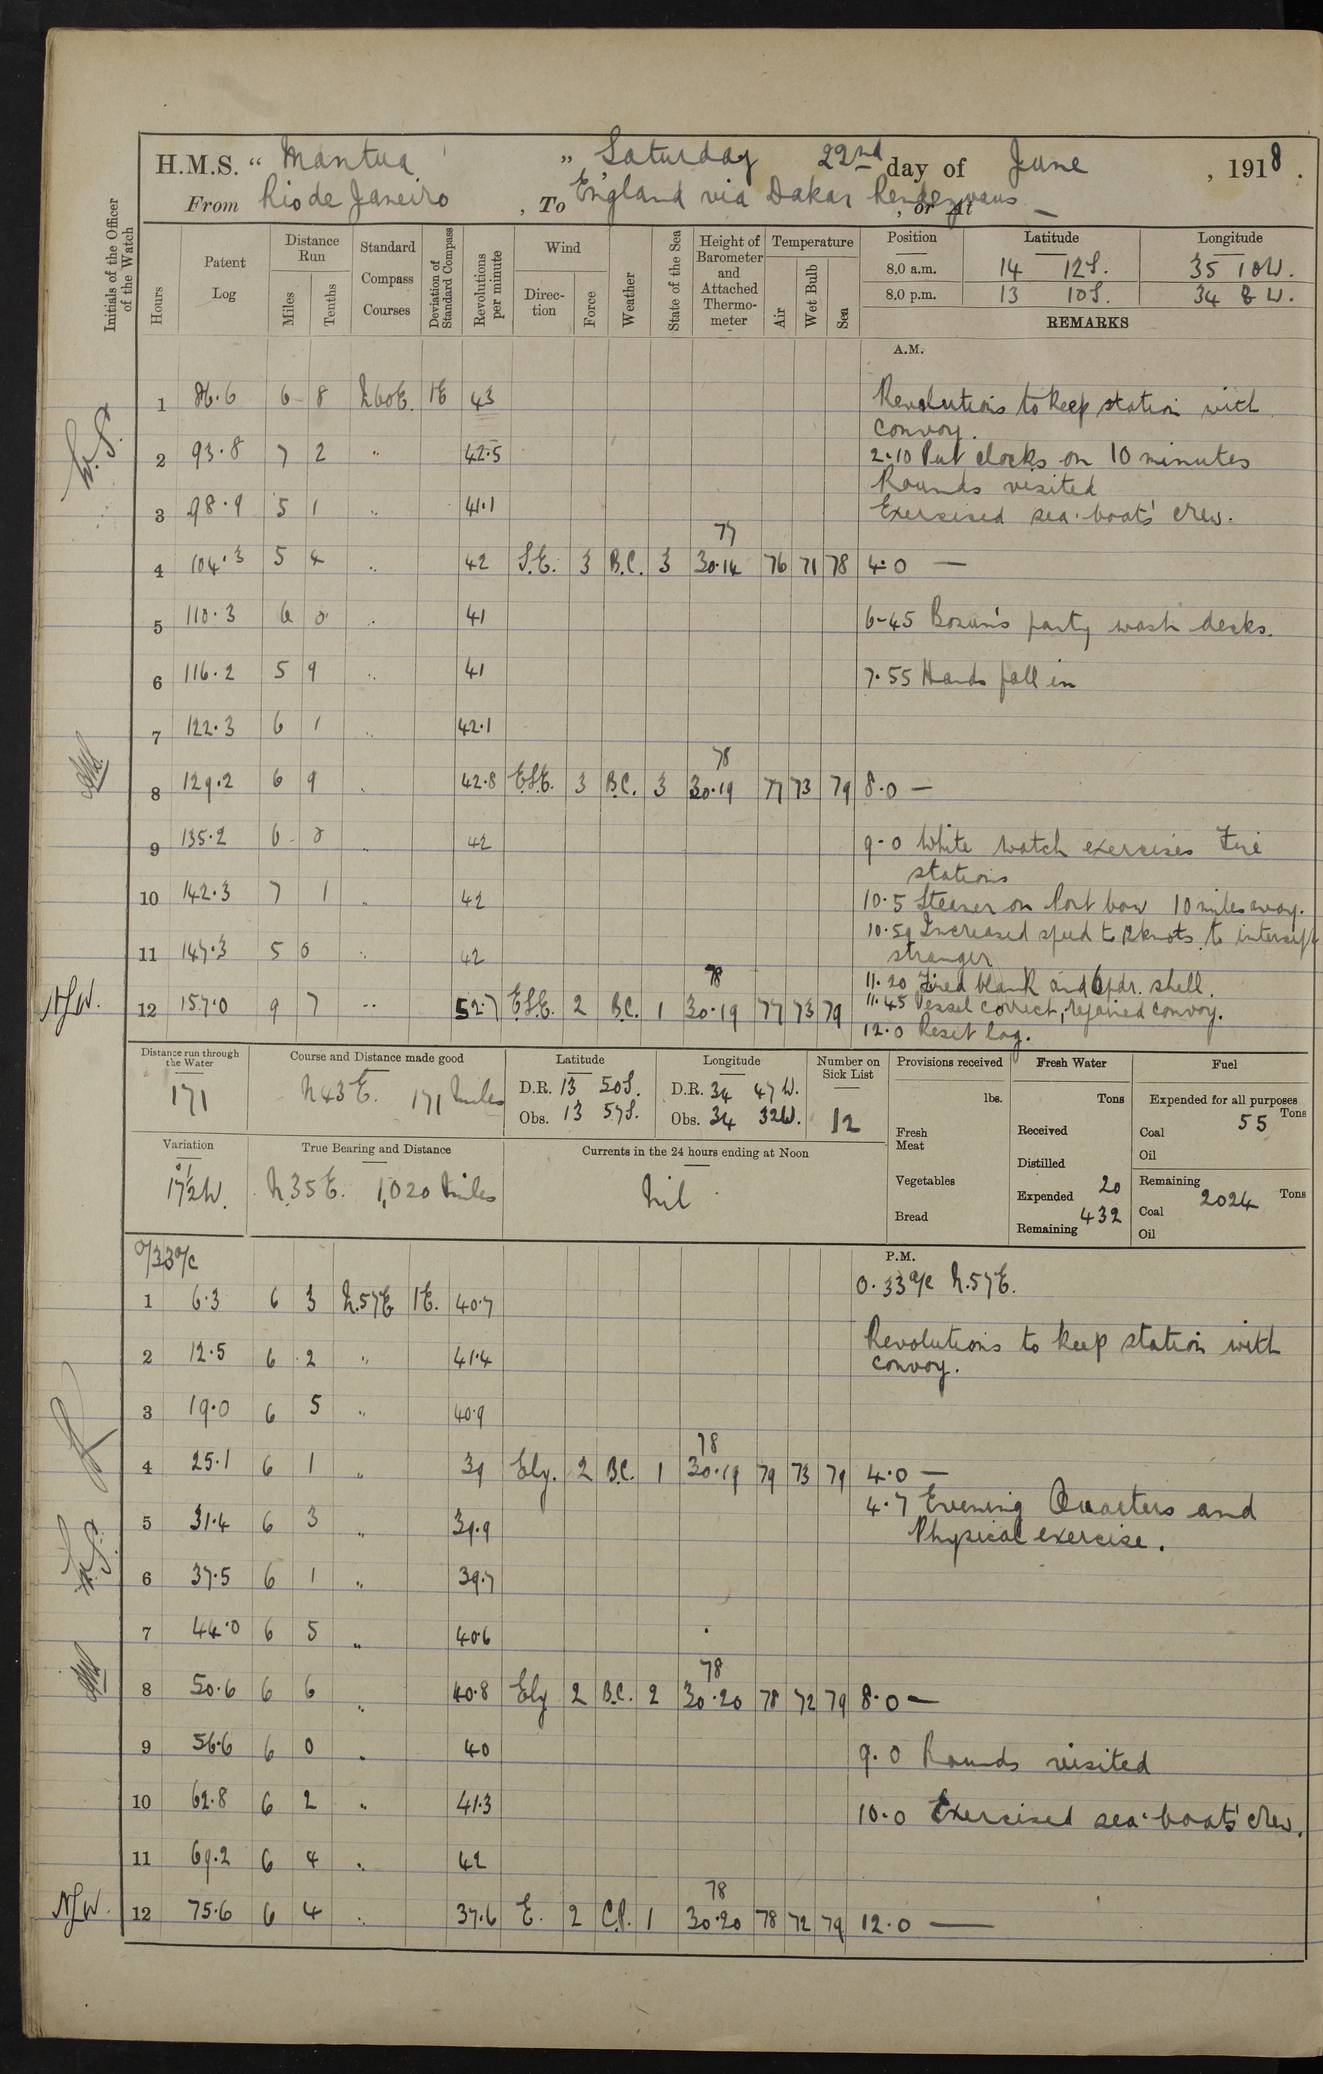 H.M.S. " Mantua " Saturday 22nd day of June , 1918 .
From Rio de Janeiro , To England via Dakar Rendezvous , or At —
Initials of the Officer of the Watch
Hours
Patent Log
Distance Run
Miles
Tenths
Standard Compass Courses
Deviation of Standard Compass
Revolutions per minute
Wind
Direction
Force
Weather
State of the Sea
Height of Barometer and Attached Thermometer
Temperature
Air
Wet Bulb
Sea
Position Latitude Longitude
8.0 a.m. 14 12S. 35 10W.
8.0 p.m. 13 10S. 34 8 W.
REMARKS
A.M.
1 86.6 6 8 N60E. 1E 43 Revolutions to keep station with
convoy.
2 93.8 7 2 " 42.5 2.10 Put clocks on 10 minutes
Rounds visited
3 98.9 5 1 " 41.1 Exercised sea-boats' crew.
77
4 104.3 5 4 " 42 S.E. 3 B.C. 3 30.14 76 71 78 4.0 —
5 110.3 6 0 " 41 6-45 Bosun's party wash decks.
6 116.2 5 9 " 41 7.55 Hands fall in
7 122.3 6 1 " 42.1
78
8 129.2 6 9 " 42.8 E.S.E. 3 B.C. 3 30.19 77 73 79 8.0 —
9 135.2 6 0 " 42 9-0 White watch exercises Fire
stations
10 142.3 7 1 " 42 10.5 Steamer on Port bow 10 miles away.
10.59 Increased speed to 12 knots to intercept
11 147.3 5 0 " 42 stranger
78
11.20 Fired blank and 6pdr. shell.
NLW. 12 157.0 9 7 " 52.7 E.S.E. 2 B.C. 1 30.19 77 73 79 11.45 Vessel correct, rejoined convoy.
12.0 Reset log.
Distance run through the Water
171
Course and Distance made good
N43E. 171 Miles
Latitude
D.R. 13 50S.
Obs. 13 57S.
Longitude
D.R. 34 47W.
Obs. 34 32W.
Number on Sick List
12
Provisions received
lbs.
Fresh Meat
Vegetables
Bread
Fresh Water
Tons
Received
Distilled
Expended 20
Remaining 432
Fuel
Expended for all purposes
Tons
Coal 55
Oil
Remaining
Tons
Coal 2024
Oil
Variation
17½W.
True Bearing and Distance
N.35E. 1,020 Miles
Currents in the 24 hours ending at Noon
Nil
P.M.
0/33 a/c 0.33 a/c N.57E.
1 6.3 6 3 N.57E 1E. 40.7
2 12.5 6 2 " 41.4 Revolutions to keep station with
convoy.
3 19.0 6 5 " 40.9
78
4 25.1 6 1 " 39 Ely. 2 B.C. 1 30.19 79 73 79 4.0 —
4.7 Evening Quarters and
5 31.4 6 3 " 39.9 Physical exercise.
6 37.5 6 1 " 39.7
7 44.0 6 5 " 40.6
78
8 50.6 6 6 " 40.8 Ely 2 B.C. 2 30.20 78 72 79 8.0 —
9 56.6 6 0 " 40 9.0 Rounds visited
10 62.8 6 2 " 41.3 10.0 Exercised sea-boats' crew.
11 69.2 6 4 " 42
78
NLW. 12 75.6 6 4 " 37.6 E. 2 C.P. 1 30.20 78 72 79 12.0 —